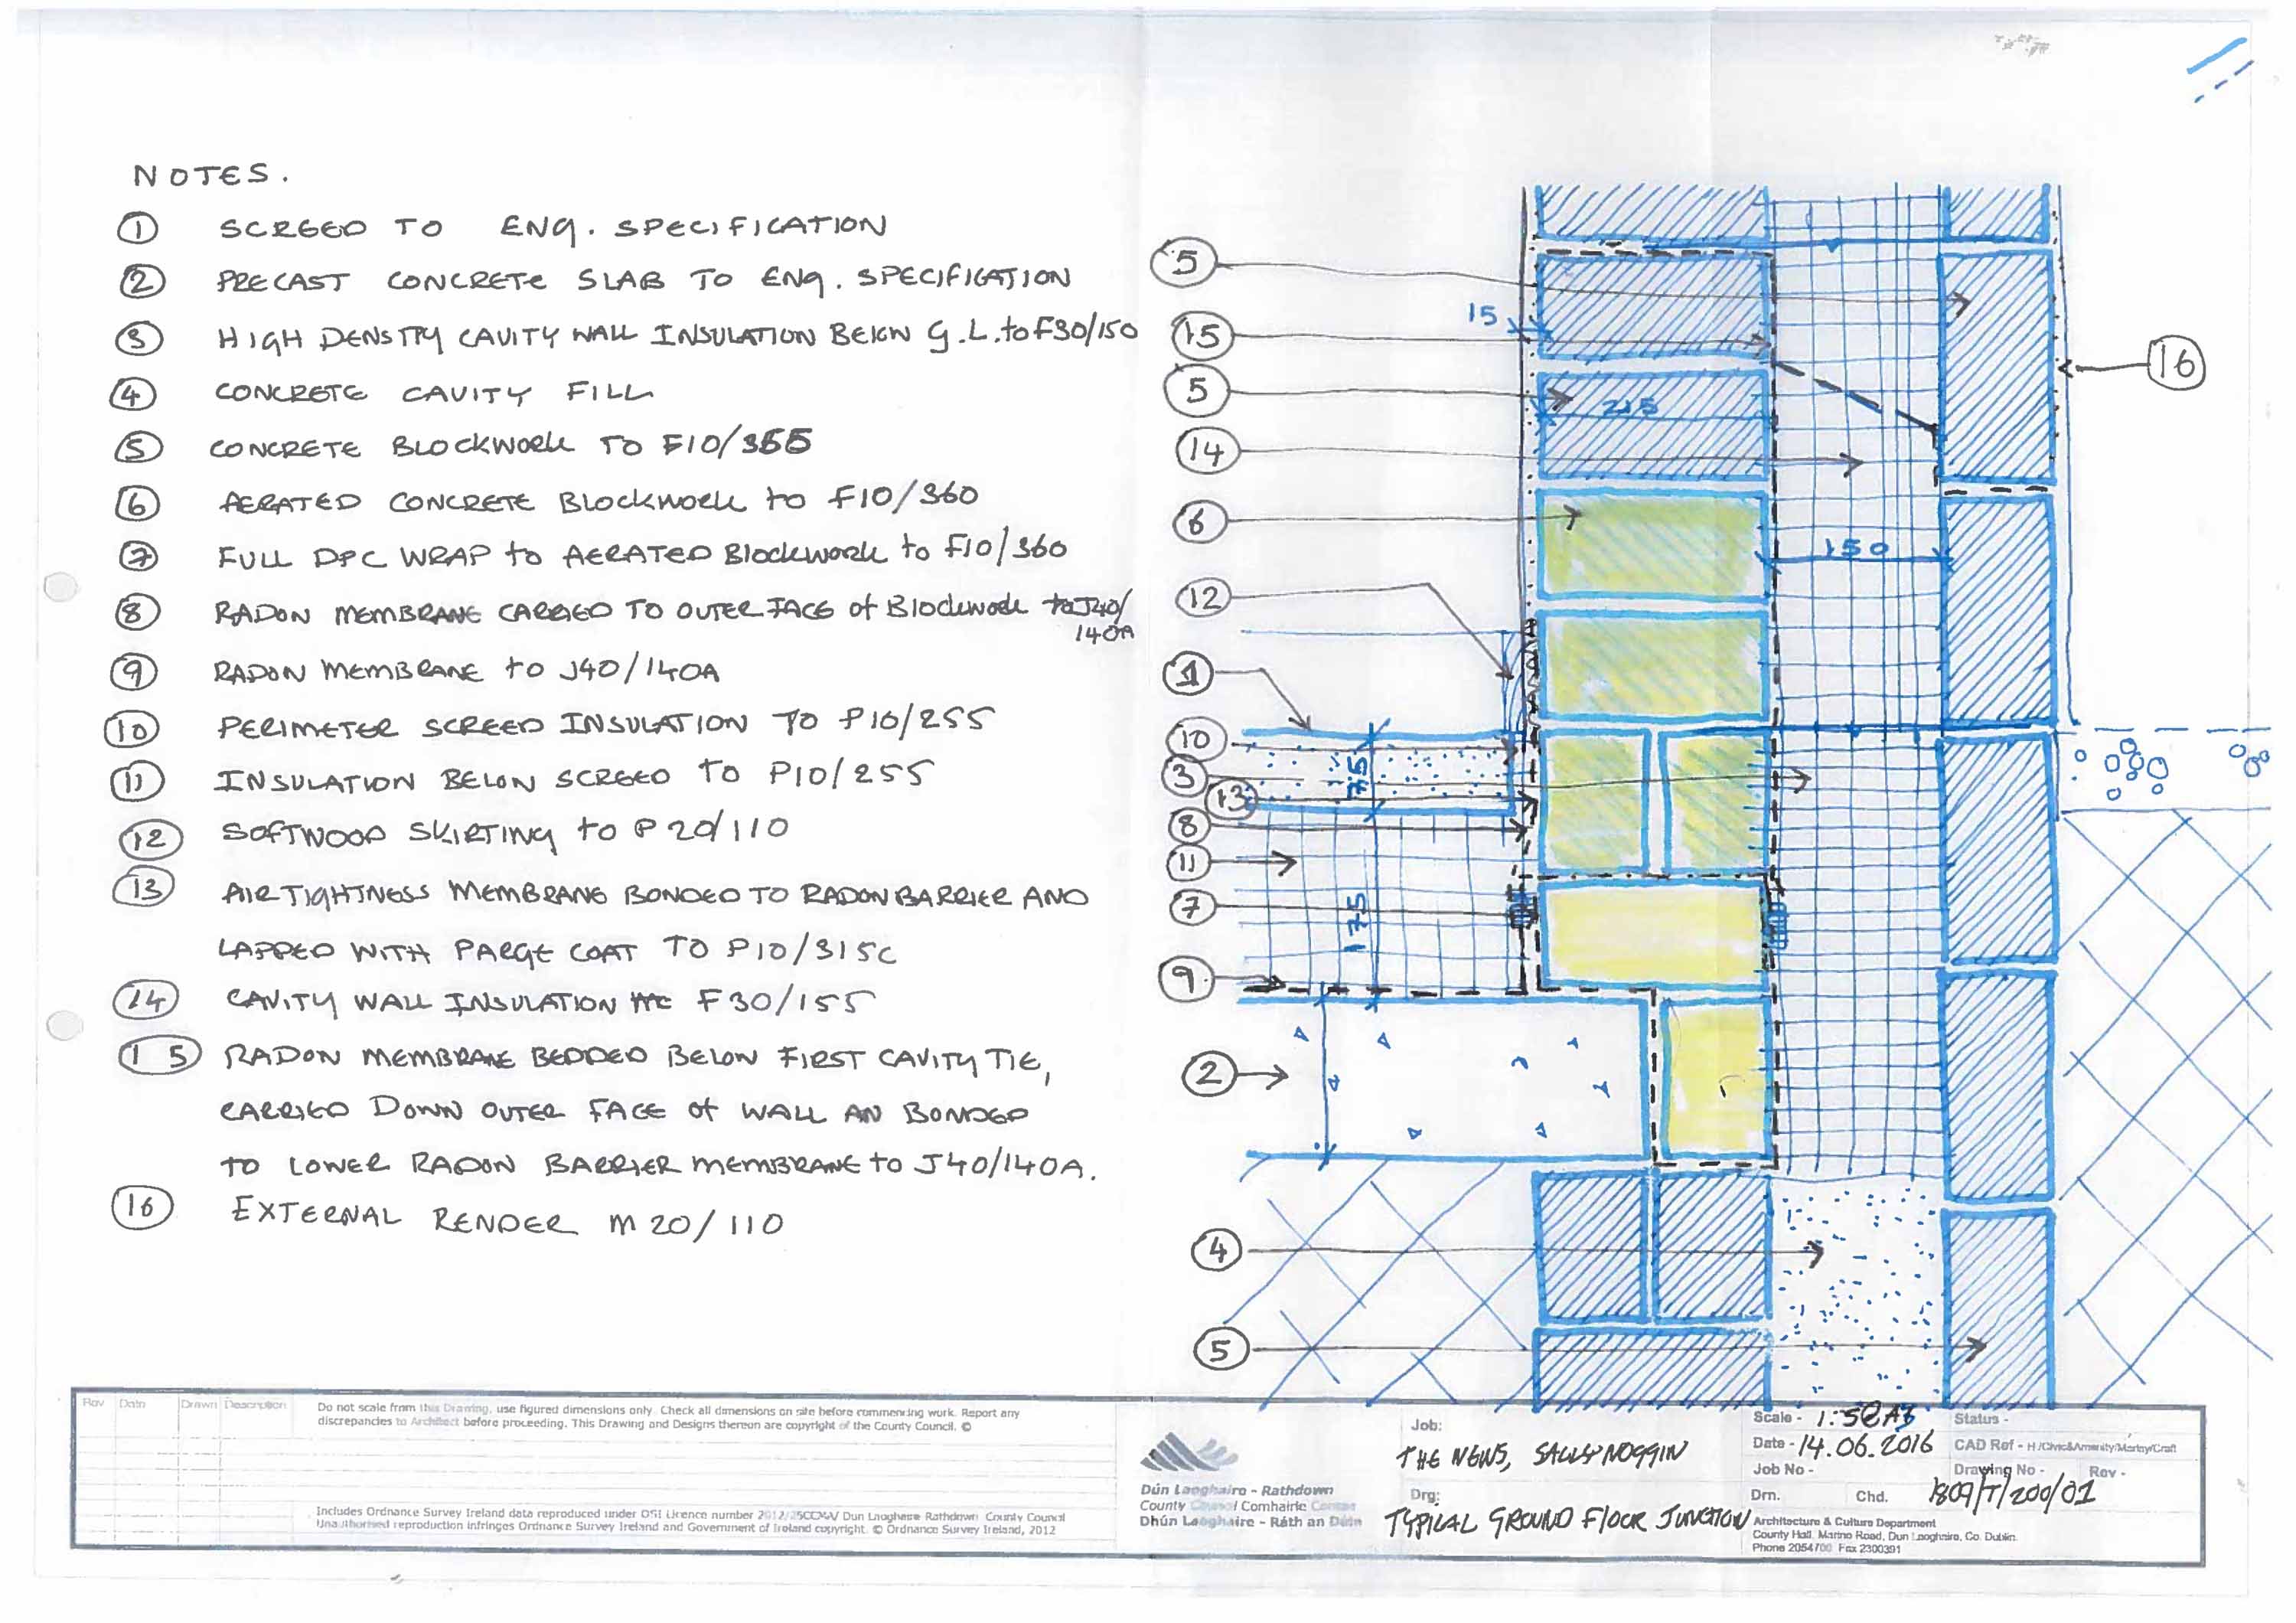 NOTES.
1 SCREED TO ENG. SPECIFICATION
2 PRECAST CONCRETE SLAB TO ENG. SPECIFICATION
3 HIGH DENSITY CAVITY WALL INSULATION BELOW G.L. to F30/150
4 CONCRETE CAVITY FILL
5 CONCRETE BLOCKWORK TO F10/355
6 AERATED CONCRETE BLOCKWORK to F10/360
7 FULL DPC WRAP to AERATED Blockwork to F10/360
8 RADON MEMBRANE CARRIED TO OUTER FACE of Blockwork to J40/
140A
9 RADON MEMBRANE to J40/140A
10 PERIMETER SCREED INSULATION TO P10/255
11 INSULATION BELOW SCREED TO P10/255
12 SOFTWOOD SKIRTING to P20/110
13 AIRTIGHTNESS MEMBRANE BONDED TO RADON BARRIER AND
LAPPED WITH PARGE COAT TO P10/315C
14 CAVITY WALL INSULATION F30/155
15 RADON MEMBRANE BEDDED BELOW FIRST CAVITY TIE,
CARRIED DOWN OUTER FACE of WALL AN BONDED
TO LOWER RADON BARRIER MEMBRANE to J40/140A.
16 EXTERNAL RENDER M20/110
5
15
15
5
215
14
6
150
12
1
10
3
75
13
8
11
7
175
9
2
4
5
16
Rev Date Drawn Description
Do not scale from this Drawing, use figured dimensions only. Check all dimensions on site before commencing work. Report any
discrepancies to Architect before proceeding. This Drawing and Designs thereon are copyright of the County Council. ©
Includes Ordnance Survey Ireland data reproduced under OSI Licence number Dun Laoghaire Rathdown County Council
Unauthorised reproduction infringes Ordnance Survey Ireland and Government of Ireland copyright. © Ordnance Survey Ireland, 2012
Dún Laoghaire - Rathdown
County Council Comhairle Contae
Dhún Laoghaire - Ráth an Dúin
Job:
THE NEWS, SALLYNOGGIN
Drg:
TYPICAL GROUND FLOOR JUNCTION
Scale - 1:5@A3
Status -
Date - 14.06.2016
CAD Ref - H:/Civic&Amenity/Marlay/Craft
Job No -
Drawing No - Rev -
1809/T/200/01
Drn. Chd.
Architecture & Culture Department
County Hall, Marino Road, Dun Laoghaire, Co. Dublin.
Phone 2054700 Fax 2300391